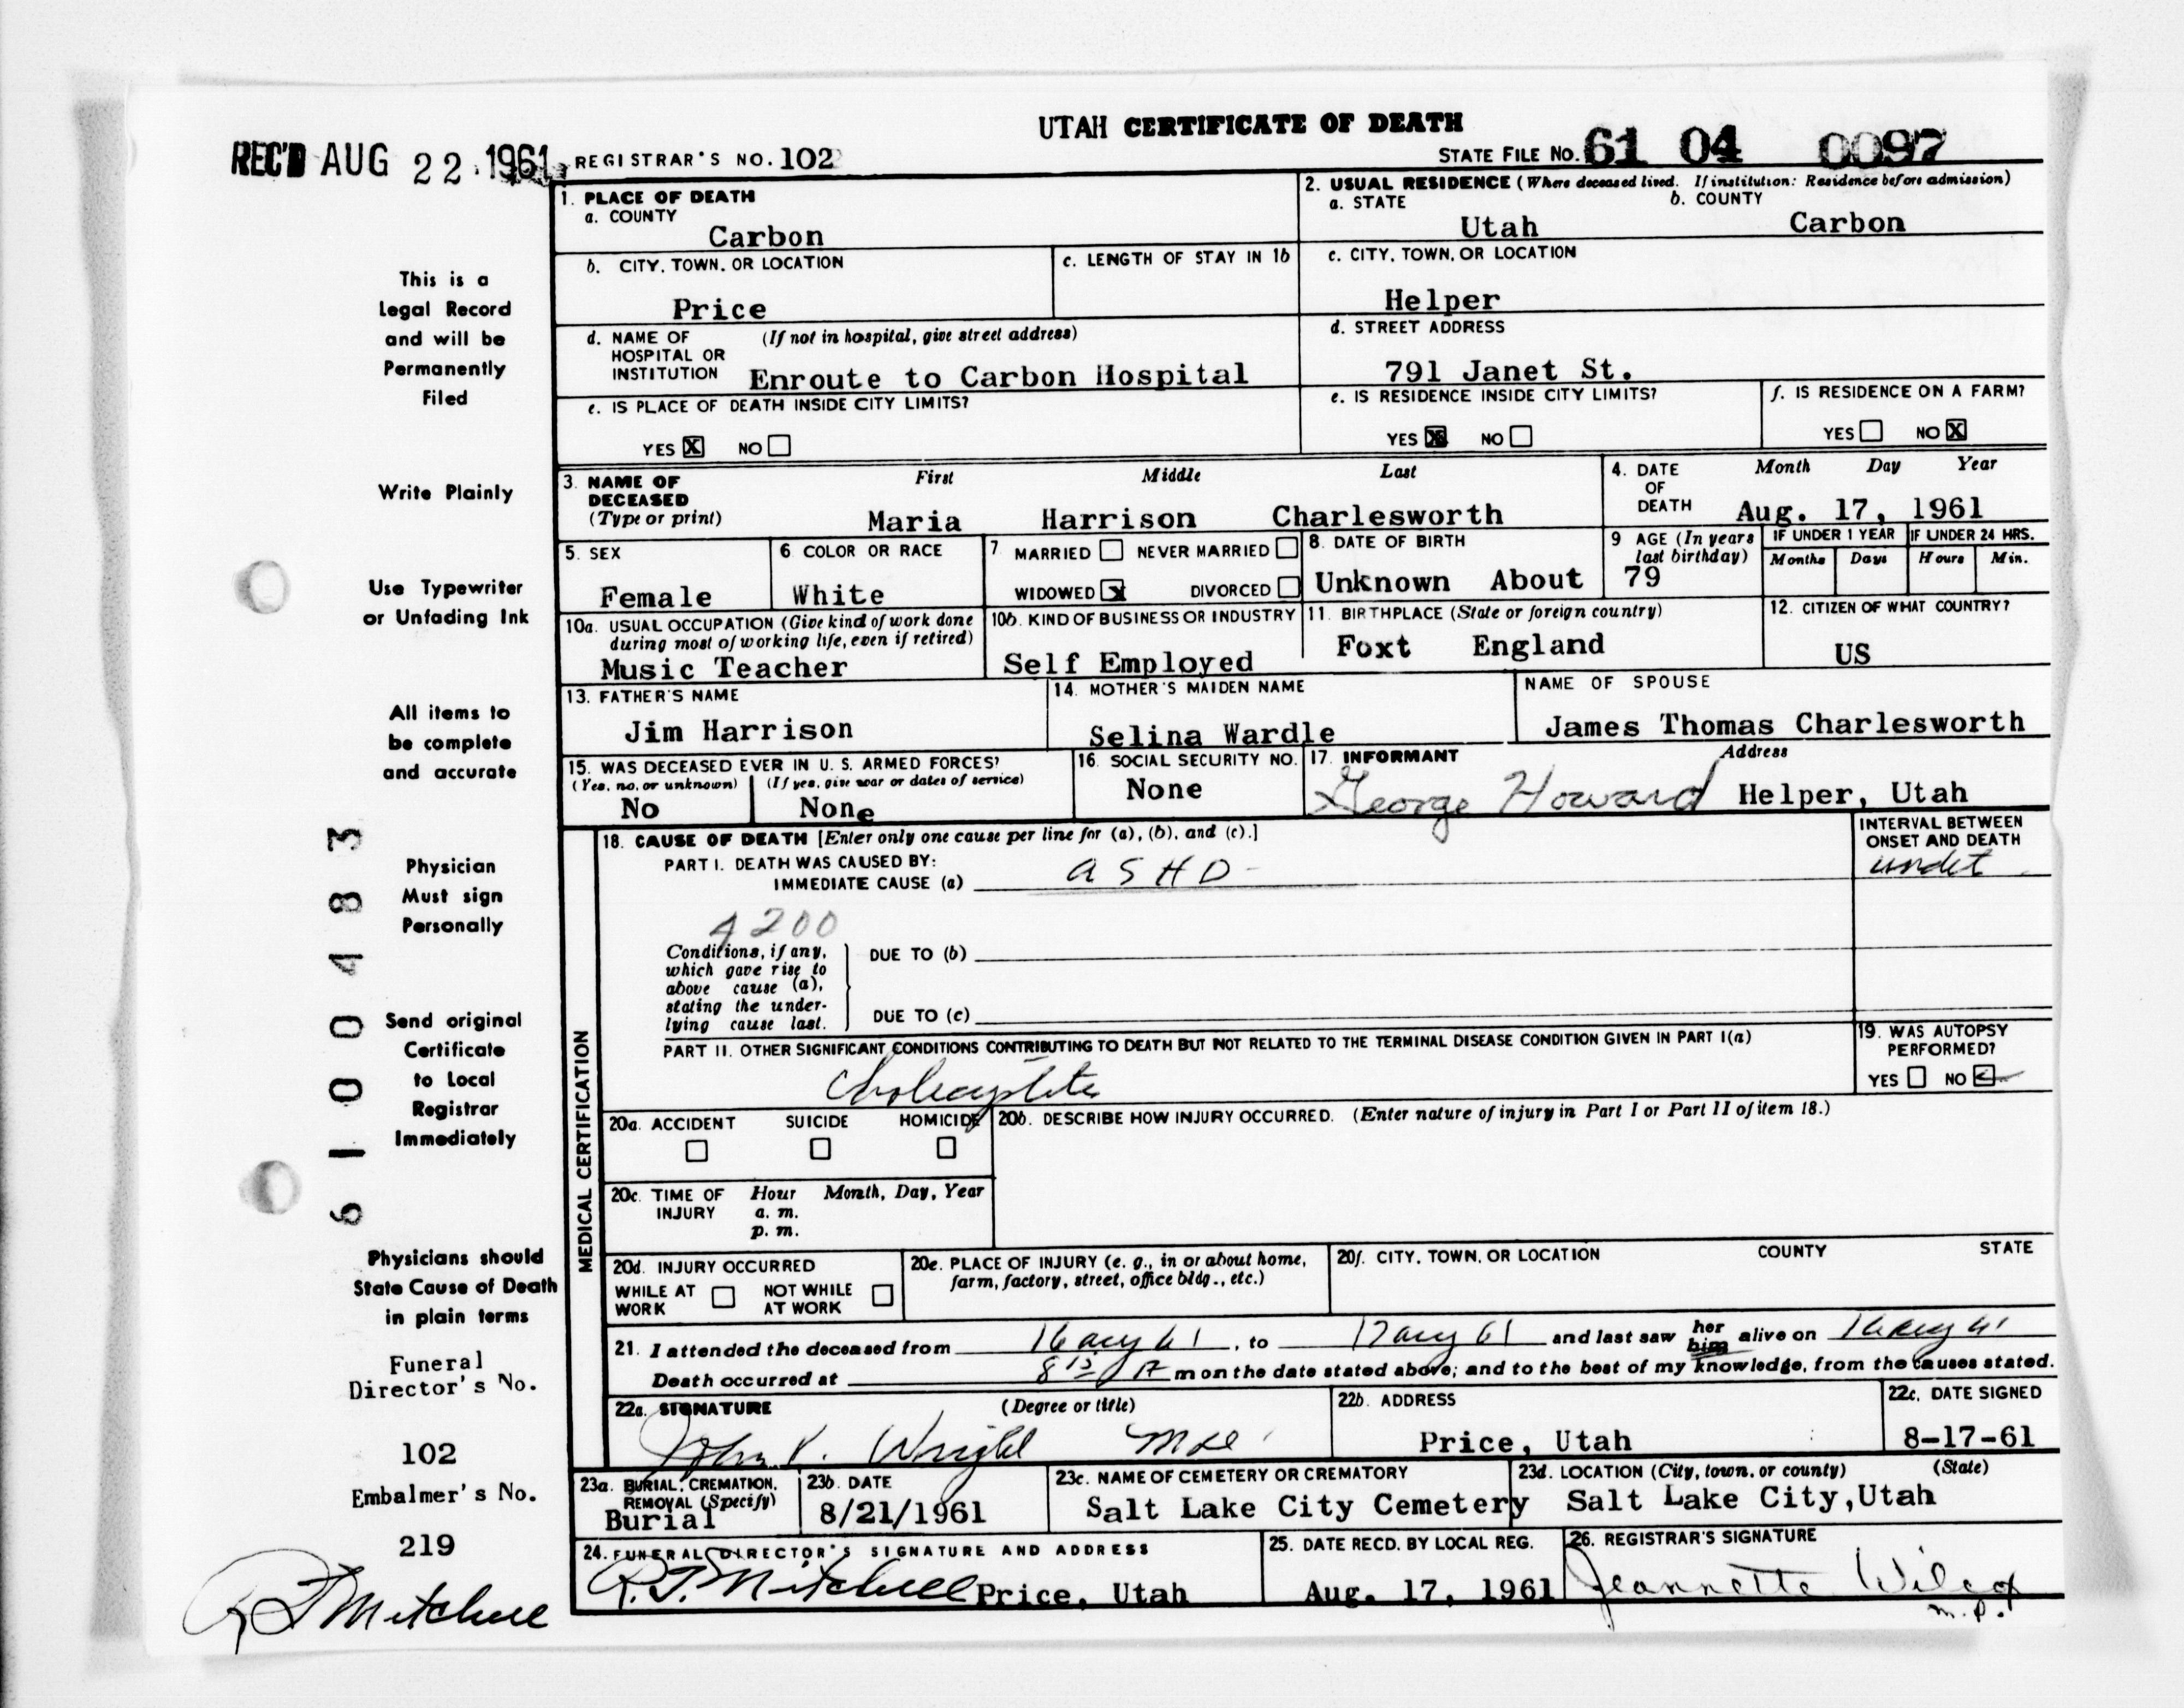 UTAH CERTIFICATE OF DEATH
REC'D AUG 22 1961 REGISTRAR'S NO. 102 STATE FILE NO. 61 04 0097
1. PLACE OF DEATH
a. COUNTY
Carbon
2. USUAL RESIDENCE (Where deceased lived. If institution: Residence before admission)
a. STATE b. COUNTY
Utah Carbon
b. CITY, TOWN, OR LOCATION
Price
c. LENGTH OF STAY IN 1b
c. CITY, TOWN, OR LOCATION
Helper
d. NAME OF HOSPITAL OR INSTITUTION (If not in hospital, give street address)
Enroute to Carbon Hospital
d. STREET ADDRESS
791 Janet St.
e. IS PLACE OF DEATH INSIDE CITY LIMITS?
YES X NO
e. IS RESIDENCE INSIDE CITY LIMITS?
YES X NO
f. IS RESIDENCE ON A FARM?
YES NO X
3. NAME OF DECEASED (Type or print)
First Middle Last
Maria Harrison Charlesworth
4. DATE OF DEATH Month Day Year
Aug. 17, 1961
5. SEX
Female
6. COLOR OR RACE
White
7. MARRIED NEVER MARRIED
WIDOWED X DIVORCED
8. DATE OF BIRTH
Unknown About
9 AGE (In years last birthday)
79
IF UNDER 1 YEAR IF UNDER 24 HRS.
Months Days Hours Min.
10a. USUAL OCCUPATION (Give kind of work done during most of working life, even if retired)
Music Teacher
10b. KIND OF BUSINESS OR INDUSTRY
Self Employed
11. BIRTHPLACE (State or foreign country)
Foxt England
12. CITIZEN OF WHAT COUNTRY?
US
13. FATHER'S NAME
Jim Harrison
14. MOTHER'S MAIDEN NAME
Selina Wardle
NAME OF SPOUSE
James Thomas Charlesworth
15. WAS DECEASED EVER IN U. S. ARMED FORCES?
(Yes, no, or unknown) (If yes, give war or dates of service)
No None
16. SOCIAL SECURITY NO.
None
17. INFORMANT Address
George Howard Helper, Utah
MEDICAL CERTIFICATION
18. CAUSE OF DEATH [Enter only one cause per line for (a), (b), and (c).]
PART I. DEATH WAS CAUSED BY:
IMMEDIATE CAUSE (a) ASHD
INTERVAL BETWEEN ONSET AND DEATH
undet
4200
Conditions, if any, which gave rise to above cause (a), stating the underlying cause last.
DUE TO (b)
DUE TO (c)
PART II. OTHER SIGNIFICANT CONDITIONS CONTRIBUTING TO DEATH BUT NOT RELATED TO THE TERMINAL DISEASE CONDITION GIVEN IN PART I(a)
19. WAS AUTOPSY PERFORMED?
YES NO
20a. ACCIDENT SUICIDE HOMICIDE
20b. DESCRIBE HOW INJURY OCCURRED. (Enter nature of injury in Part I or Part II of item 18.)
20c. TIME OF INJURY Hour Month, Day, Year
a. m.
p. m.
20d. INJURY OCCURRED
WHILE AT WORK NOT WHILE AT WORK
20e. PLACE OF INJURY (e. g., in or about home, farm, factory, street, office bldg., etc.)
20f. CITY, TOWN, OR LOCATION COUNTY STATE
21. I attended the deceased from 16 Aug 61, to 17 Aug 61 and last saw her him alive on 16 Aug 61
Death occurred at 8 15 A m on the date stated above; and to the best of my knowledge, from the causes stated.
22a. SIGNATURE (Degree or title)
John Wright
22b. ADDRESS
Price, Utah
22c. DATE SIGNED
8-17-61
23a. BURIAL, CREMATION, REMOVAL (Specify)
Burial
23b. DATE
8/21/1961
23c. NAME OF CEMETERY OR CREMATORY
Salt Lake City Cemetery
23d. LOCATION (City, town, or county) (State)
Salt Lake City, Utah
24. FUNERAL DIRECTOR'S SIGNATURE AND ADDRESS
R.T. Mitchell Price, Utah
25. DATE RECD. BY LOCAL REG.
Aug. 17, 1961
26. REGISTRAR'S SIGNATURE
Jeannette Wilcox
This is a
Legal Record
and will be
Permanently
Filed
Write Plainly
Use Typewriter
or Unfading Ink
All items to
be complete
and accurate
Physician
Must sign
Personally
Send original
Certificate
to Local
Registrar
Immediately
Physicians should
State Cause of Death
in plain terms
Funeral
Director's No.
102
Embalmer's No.
219
R T Mitchell
6 1 0 0 4 8 3